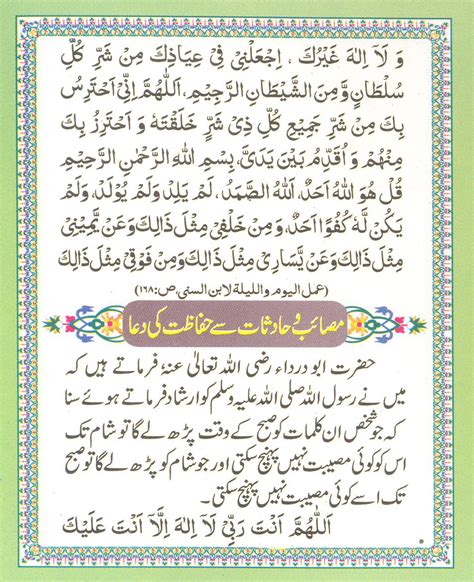 وَ لَآ اِلٰهَ غَيْرُكَ ، اِجْعَلْنِيْ فِيْ عِيَاذِكَ مِنْ شَرِّ كُلِّ
سُلْطَانٍ وَّمِنَ الشَّيْطَانِ الرَّجِيْمِ، اَللّٰهُمَّ اِنِّيْ اَحْتَرِسُ
بِكَ مِنْ شَرِّ جَمِيْعِ كُلِّ ذِيْ شَرٍّ خَلَقْتَهٗ وَ اَحْتَرِزُ بِكَ
مِنْهُمْ وَ اُقَدِّمُ بَيْنَ يَدَيَّ، بِسْمِ اللهِ الرَّحْمٰنِ الرَّحِيْمِ
قُلْ هُوَ اللهُ اَحَدٌ، اَللهُ الصَّمَدُ، لَمْ يَلِدْ وَلَمْ يُوْلَدْ، وَلَمْ
يَكُنْ لَّهٗ كُفُوًا اَحَدٌ، وَمِنْ خَلْفِيْ مِثْلَ ذَالِكَ وَعَنْ يَّمِيْنِيْ
مِثْلَ ذَالِكَ وَعَنْ يَّسَارِيْ مِثْلَ ذَالِكَ وَمِنْ فَوْقِيْ مِثْلَ ذَالِكَ
(عمل اليوم والليلة لابن السني، ص:۱۶۸)
مصائب و حادثات سے حفاظت کی دعا
حضرت ابودرداء رضی اللہ تعالیٰ عنہٗ فرماتے ہیں کہ
میں نے رسول اللہ صلی اللہ علیہ وسلم کو ارشاد فرماتے ہوئے سنا
کہ جو شخص ان کلمات کو صبح کے وقت پڑھ لے گا تو شام تک
اس کو کوئی مصیبت نہیں پہنچ سکتی اور جو شام کو پڑھ لے گا تو صبح
تک اسے کوئی مصیبت نہیں پہنچ سکتی۔
اَللّٰهُمَّ اَنْتَ رَبِّيْ لَآ اِلٰهَ اِلَّا اَنْتَ عَلَيْكَ
۵